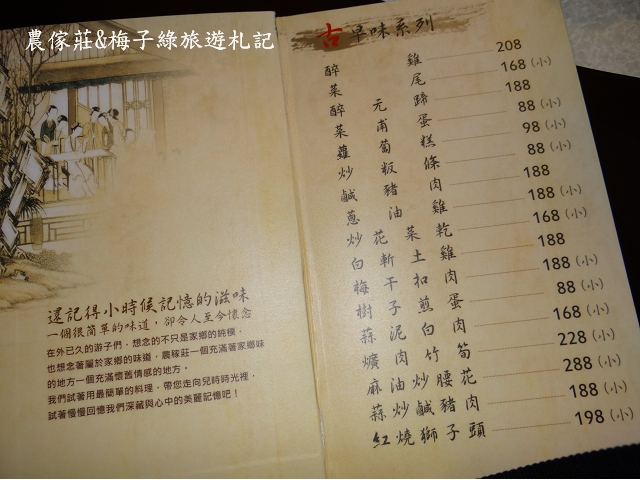 農傢莊&梅子綠旅遊札記
還記得小時候記憶的滋味
一個很簡單的味道，卻令人至今懷念
在外已久的游子們，想念的不只是家鄉的純樸，
也想念著屬於家鄉的味道，農稼莊一個充滿著家鄉味
的地方一個充滿懷舊情感的地方。
我們試著用最簡單的料理，帶您走向兒時時光裡，
試著慢慢回憶我們深藏與心中的美麗記憶吧！
古早味系列
醉雞 208
菜尾 168(小)
醉元蹄 188
菜甫蛋 88(小)
蘿蔔糕 98(小)
炒粄條 88(小)
鹹豬肉 188
蔥油雞 188(小)
炒花菜乾 168(小)
白斬土雞 188
梅干扣肉 188(小)
樹子煎蛋 88(小)
蒜泥白肉 168(小)
爌肉竹筍 228(小)
麻油炒腰花 288(小)
蒜炒鹹豬肉 188(小)
紅燒獅子頭 198(小)